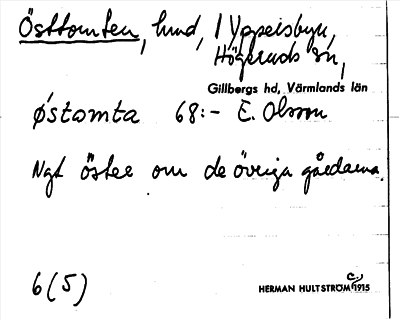 Östtomten, lund, I Yppersbyn,
Högeruds sn,
Gillbergs hd, Värmlands län
östomta 68:- E. Olsson
Ngt öster om de övriga gårdarna.
6(5)
HERMAN HULTSTRÖM c. 1915